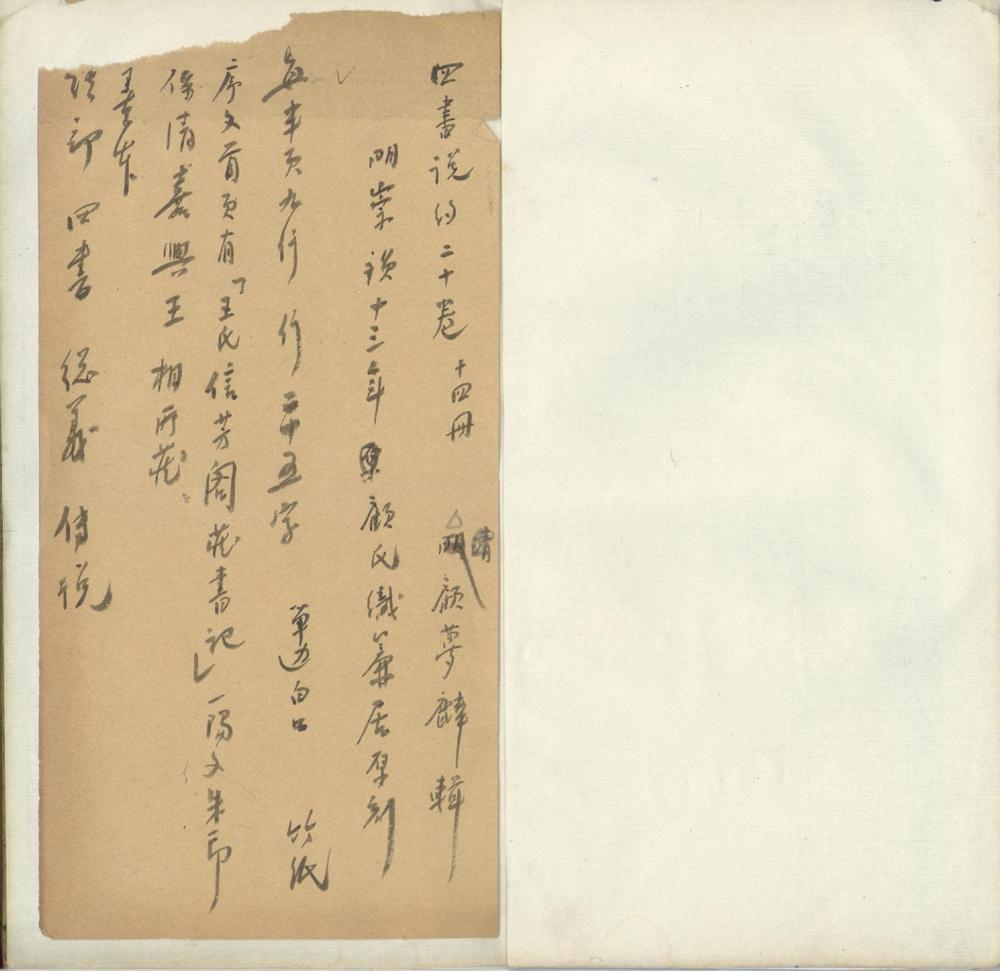 四書說約二十卷 十四冊 清顧夢麟輯
明崇禎十三年顧氏織簾居原刻
每半頁九行 行二十五字 單边白口 竹紙
序文首頁有「王氏信芳阁藏書記」一陽文朱印
係清嘉興王相所藏。
善本
經部 四書 總義 傳說